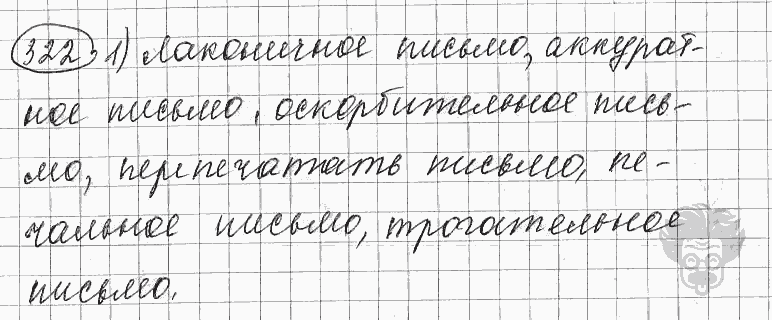 322. 1) Лаконичное письмо, аккурат-
ное письмо, оскорбительное пись-
мо, перпечатать письмо, пе-
чальное письмо, трогательное
письмо.